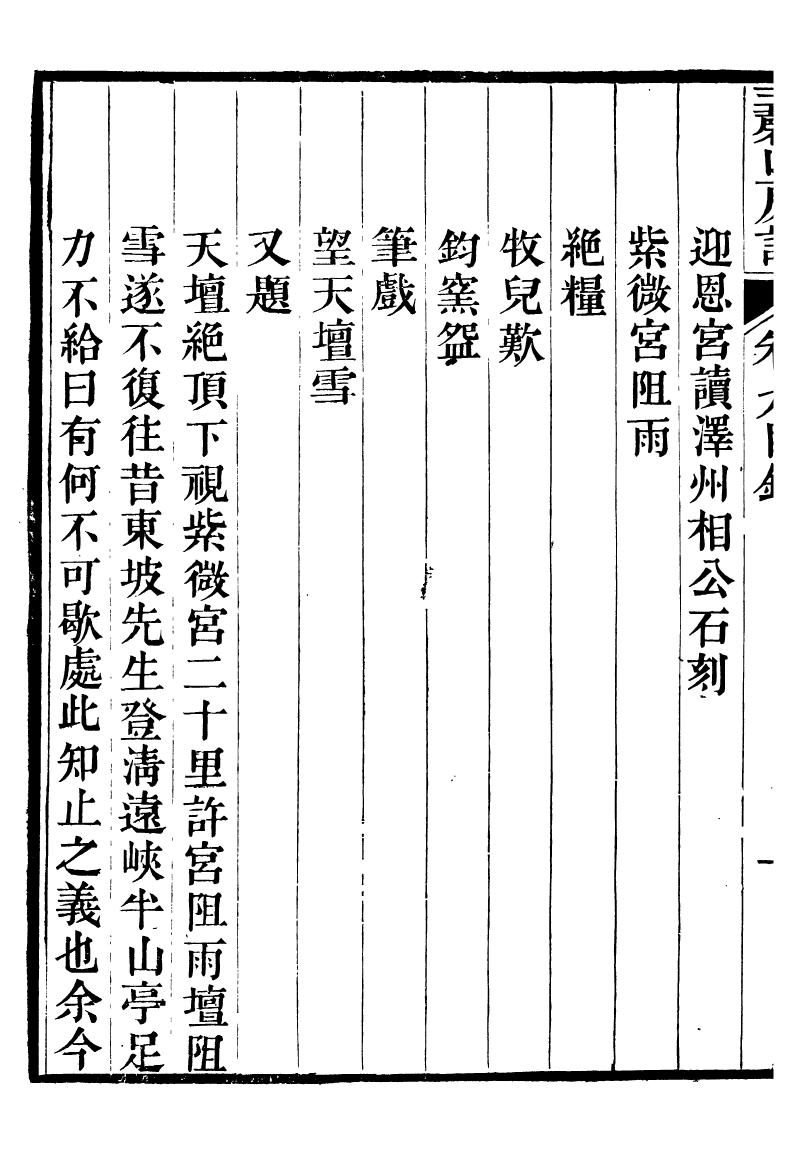 迎恩宮讀澤州相公石刻
紫微宮阻雨
絶糧
牧兒歎
鈞窯盌
筆戲
望天壇雪
又題
天壇絶頂下視紫微宮二十里許宮阻雨壇阻
雪遂不復往昔東坡先生登清遠峽半山亭足
力不給曰有何不可歇處此知止之義也余今